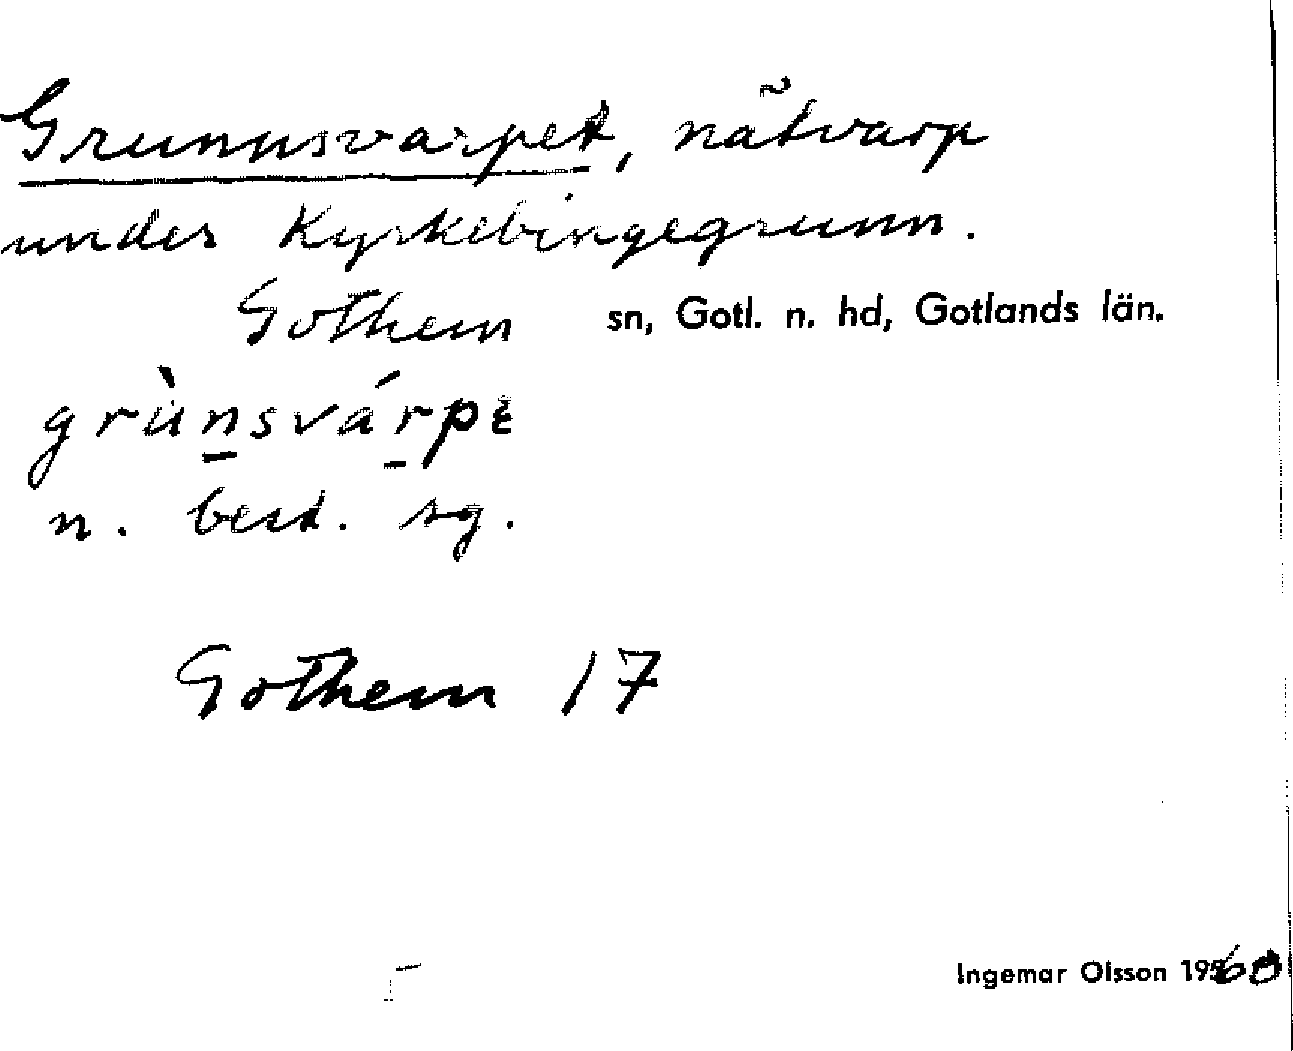 Grunnsvarpet, nätvarp
under Kyrkebingegrunn.
Gothem sn, Gotl. n. hd, Gotlands län.
grùn̲svár̲pɛ
n. best. sg.
Gothem 17
Ingemar Olsson 1960